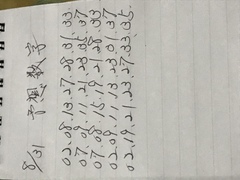 8/31 予想数字
02.08.13.27.28.31.33
07.09.11.21.23.35.37
07.08.15.19.21.28.33
02.09.11.13.23.31.37
02.19.21.23.27.33.35